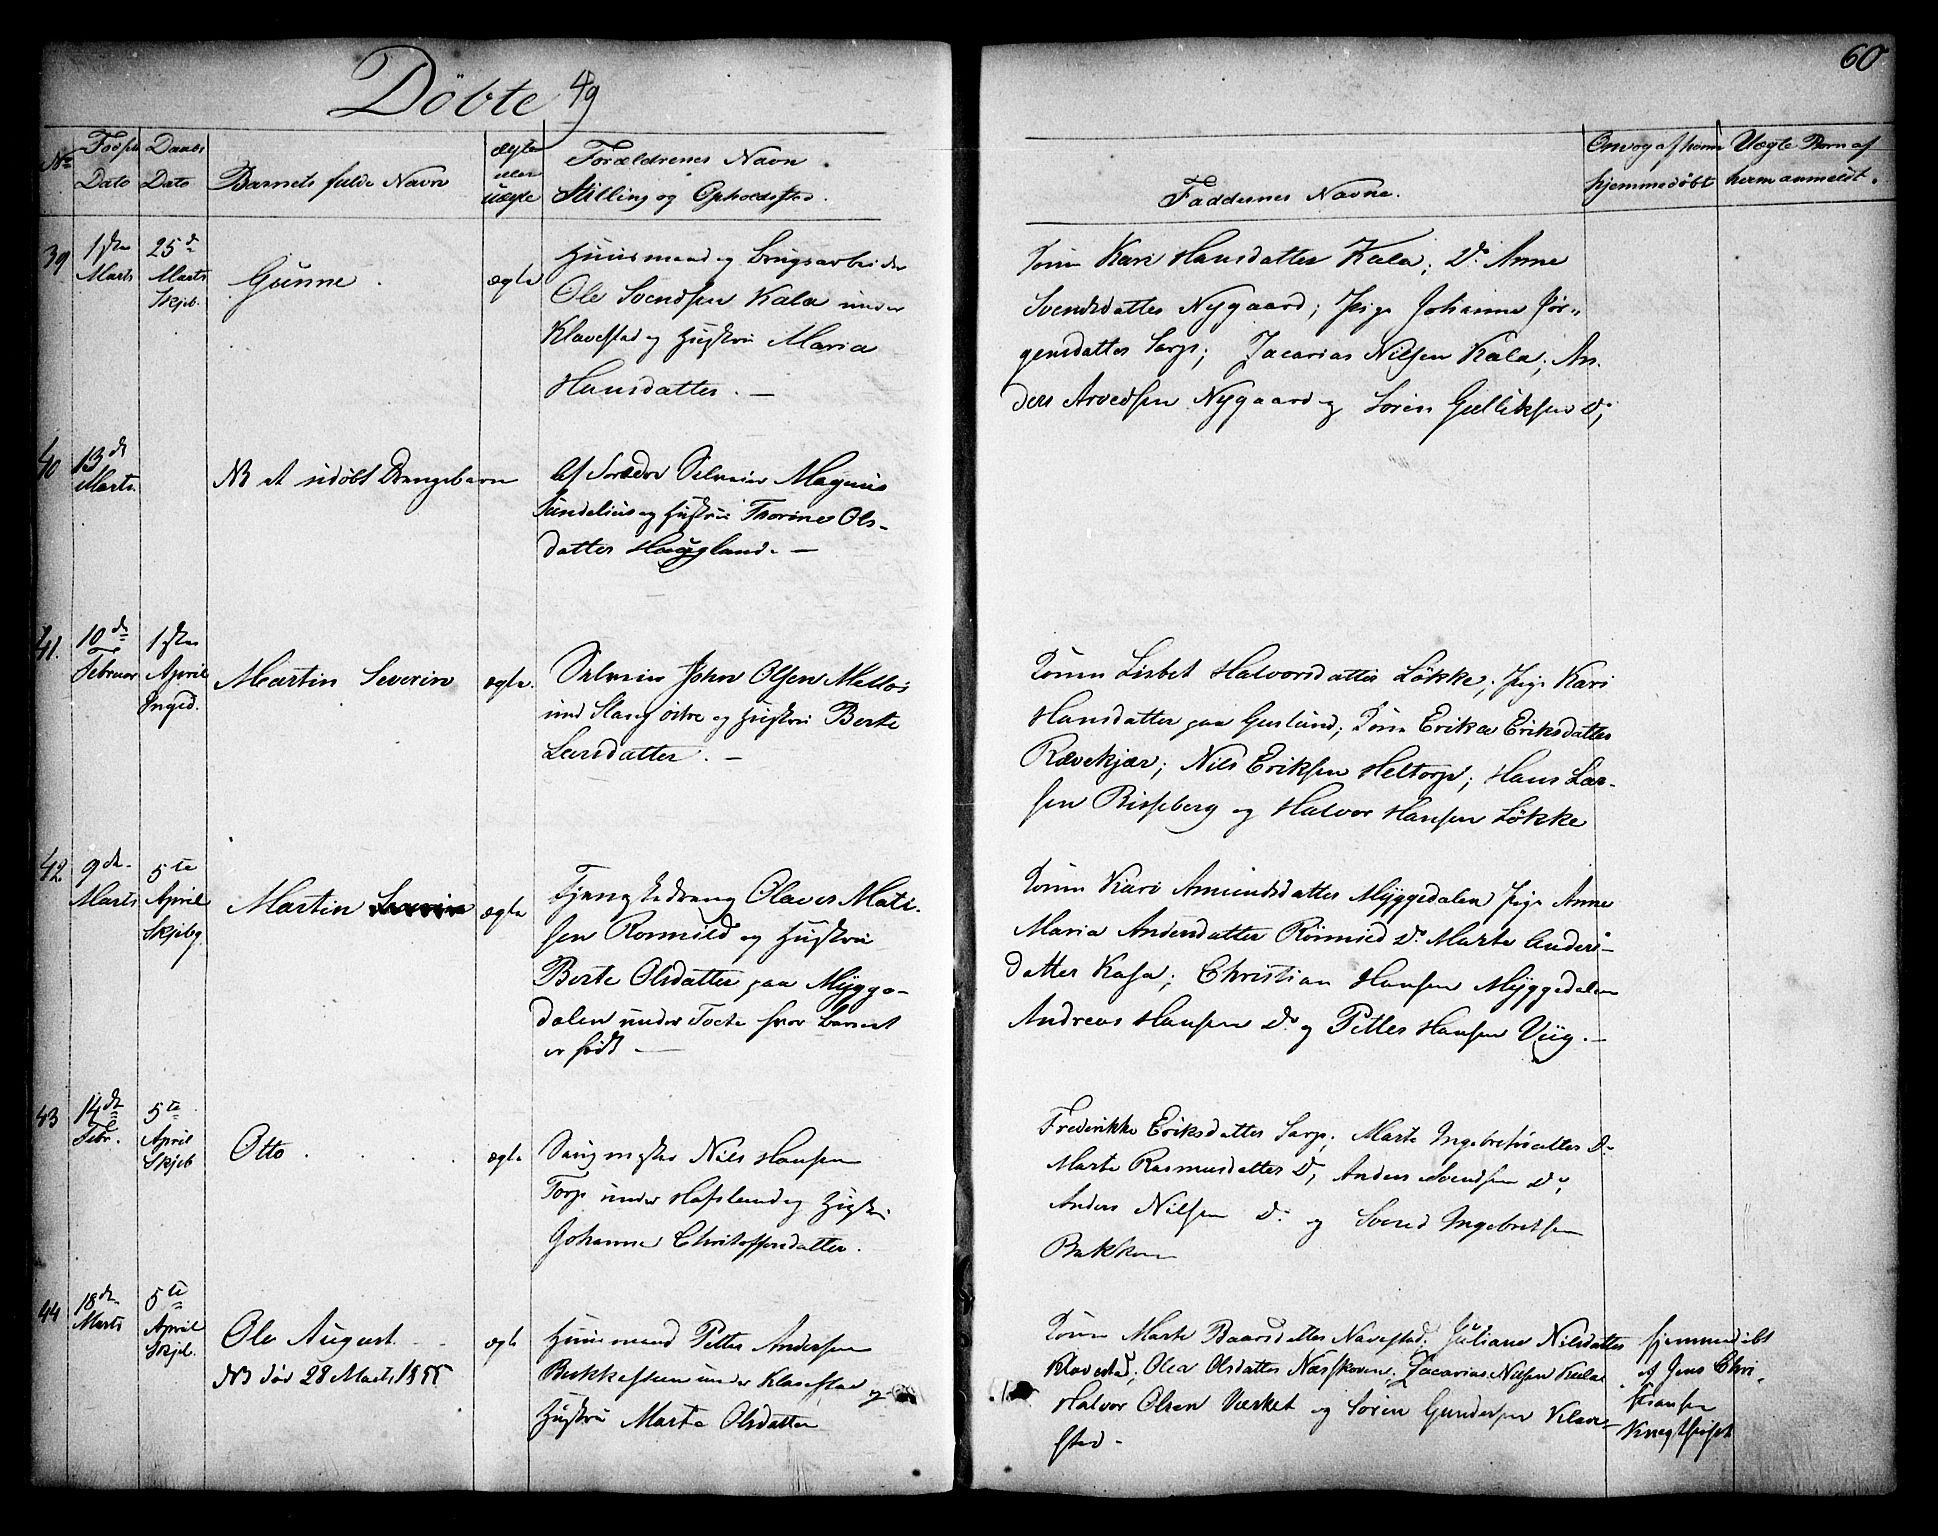 60
Döbte 49
No
Fødsels Dato
Daabs Dato
Barnets fulde Navn
ægte eller uægte
Forældrenes Navn
Stilling og Opholdssted.
Faddernes Navne.
Om og af hvem hjemmedöbt
Uægte Barn af hvem anmeldt.
39
1ste Marts
25de Marts Skjeb.
Gunne
ægte
Huusmand og Brugsarbeider
Ole Svendsen Kala under
Klavestad og Hustru Maria
Hansdatter. —
Konen Kari Hansdatter Kala; Do Anne
Svendsdatter Nygaard; Pige Johanne Jör-
gensdatter Sarp; Zacarias Nilsen Kala; An-
ders Arvedsen Nygaard og Sören Gulliksen Do;
40
13de Marts
NB et udøbt Drengebarn
af Selveier Magnus
Sundelius og Hustru Thorine Ols-
datter Haugland. —
41.
10de Februar
1ste April Inged.
Martin Severin
ægte.
Selveier John Olsen Melløs
og Hustru Berte
Larsdatter. —
Konen Lisbet Halvorsdatter Løkke; Pige Kari
Hansdatter paa Guslund; Kone Erika Eriksdatter
Rævekjær; Nils Eriksen Heltorp; Hans Lar-
sen Risseberg og Halvor Hansen Løkke
42
9de Marts
5te April Skjebg
Martin
ægte
Tjenestedreng Olaves Mati-
sen Romnild og Hustru
Berte Olsdatter paa Mygge-
dalen under Tveta hvor Barnet
er født —
Konen Kari Amundsdatter Myggedalen Pige Anne
Maria Andersdatter Romnild Do Marte Anders-
datter Kasa; Christian Hansen Myggedalen
Andreas Hansen Do og Petter Hansen Viig. —
43
14de Febr.
5te April Skjeb
Otto
ægte
Saugmester Nils Hansen
Torp under Hafslund og Hustru
Johanne Christoffersdatter.
Frederikke Eriksdatter Sarp; Marte Ingebretsdatter Do
Marte Rasmusdatter Do; Anders Svendsen Do;
Anders Nilsen Do og Svend Ingebretsen
Bakken
44
18de Marts
5te April Skjeb.
Ole August
NB död 28 Marts 1855
ægte
Huusmand Petter Andersen
Bekkesteen under Klavestad og
Hustru Marte Olsdatter
Konen Marte Baardsdatter Navestad; Juliane Nilsdatter
Klavestad; Olea Olsdatter Næsskoven; Zacarias Nilsen Kala
Halvor Olsen Værket og Sören Gundersen Klave-
stad -
Hjemmedøbt
af Jens Chri-
stiansen